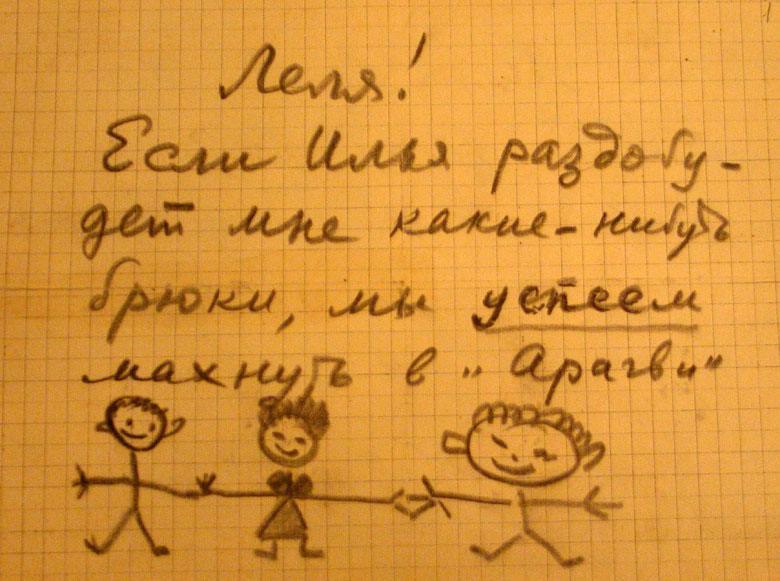 Леля!
Если Илья раздобу-
дет мне какие-нибуть
брюки, мы успеем
махнуть в „Арагви“